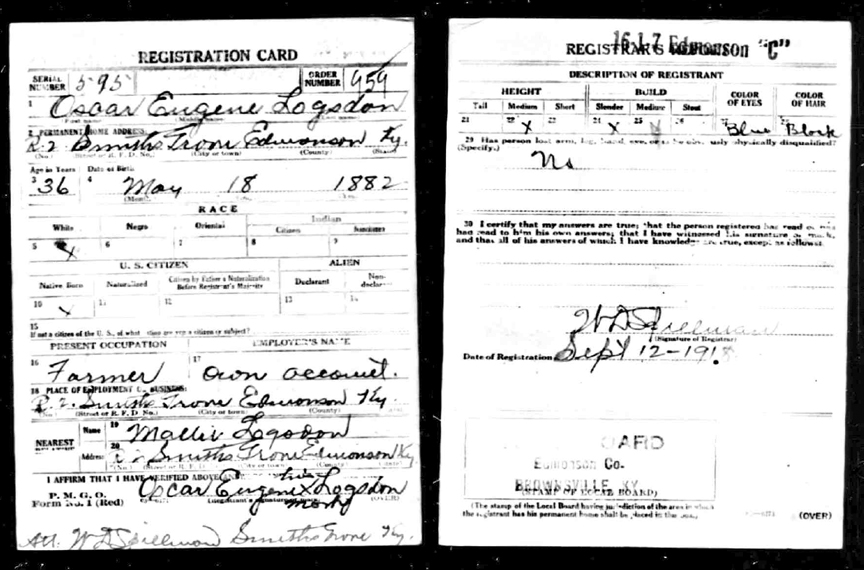 REGISTRATION CARD
SERIAL NUMBER 595 ORDER NUMBER 459
1 Oscar Eugene Logsdon
2 PERMANENT HOME ADDRESS:
R.2 Smiths Grove Edmonson Ky.
(No.) (Street or R. F. D. No.) (City or town) (County) (State)
Age in Years Date of Birth
3 36 4 May 18 1882
RACE
White Negro Oriental Indian
Citizen
5 X 6 7 8 9
U. S. CITIZEN ALIEN
Native Born Naturalized Citizen by Father's Naturalization Before Registrant's Majority Declarant Non-declarant
10 X 11 12 13 14
15
If not a citizen of the U. S., of what nation are you a citizen or subject?
PRESENT OCCUPATION EMPLOYER'S NAME
16 Farmer 17 own account.
18 PLACE OF EMPLOYMENT OR BUSINESS:
R.2. Smiths Grove Edmonson Ky.
(No.) (Street or R. F. D. No.) (City or town) (County)
NEAREST Name 19 Mallie Logsdon
Address 20 R.2 Smiths Grove Edmonson Ky
I AFFIRM THAT I HAVE VERIFIED ABOVE his
P. M. G. O.
Form No. 1 (Red) Oscar Eugene X Logsdon
mark (OVER)
Att. W D Spillman Smiths Grove Ky.
REGISTRAR'S 16 1-7 Edmonson "C"
DESCRIPTION OF REGISTRANT
HEIGHT BUILD COLOR OF EYES COLOR OF HAIR
Tall Medium Short Slender Medium Stout
21 22 X 23 24 X 25 26 27 Blue 28 Black
29 Has person lost arm, leg, hand, eye, or is he obviously physically disqualified?
(Specify.) No
30 I certify that my answers are true; that the person registered has read or has
had read to him his own answers; that I have witnessed his signature or mark,
and that all of his answers of which I have knowledge are true, except as follows:
W D Spillman
(Signature of Registrar)
Date of Registration Sept 12-191
CARD
Edmonson Co.
BROWNSVILLE, KY.
(STAMP OF LOCAL BOARD)
(The stamp of the Local Board having jurisdiction of the area in which
the registrant has his permanent home shall be placed in this box.)
(OVER)